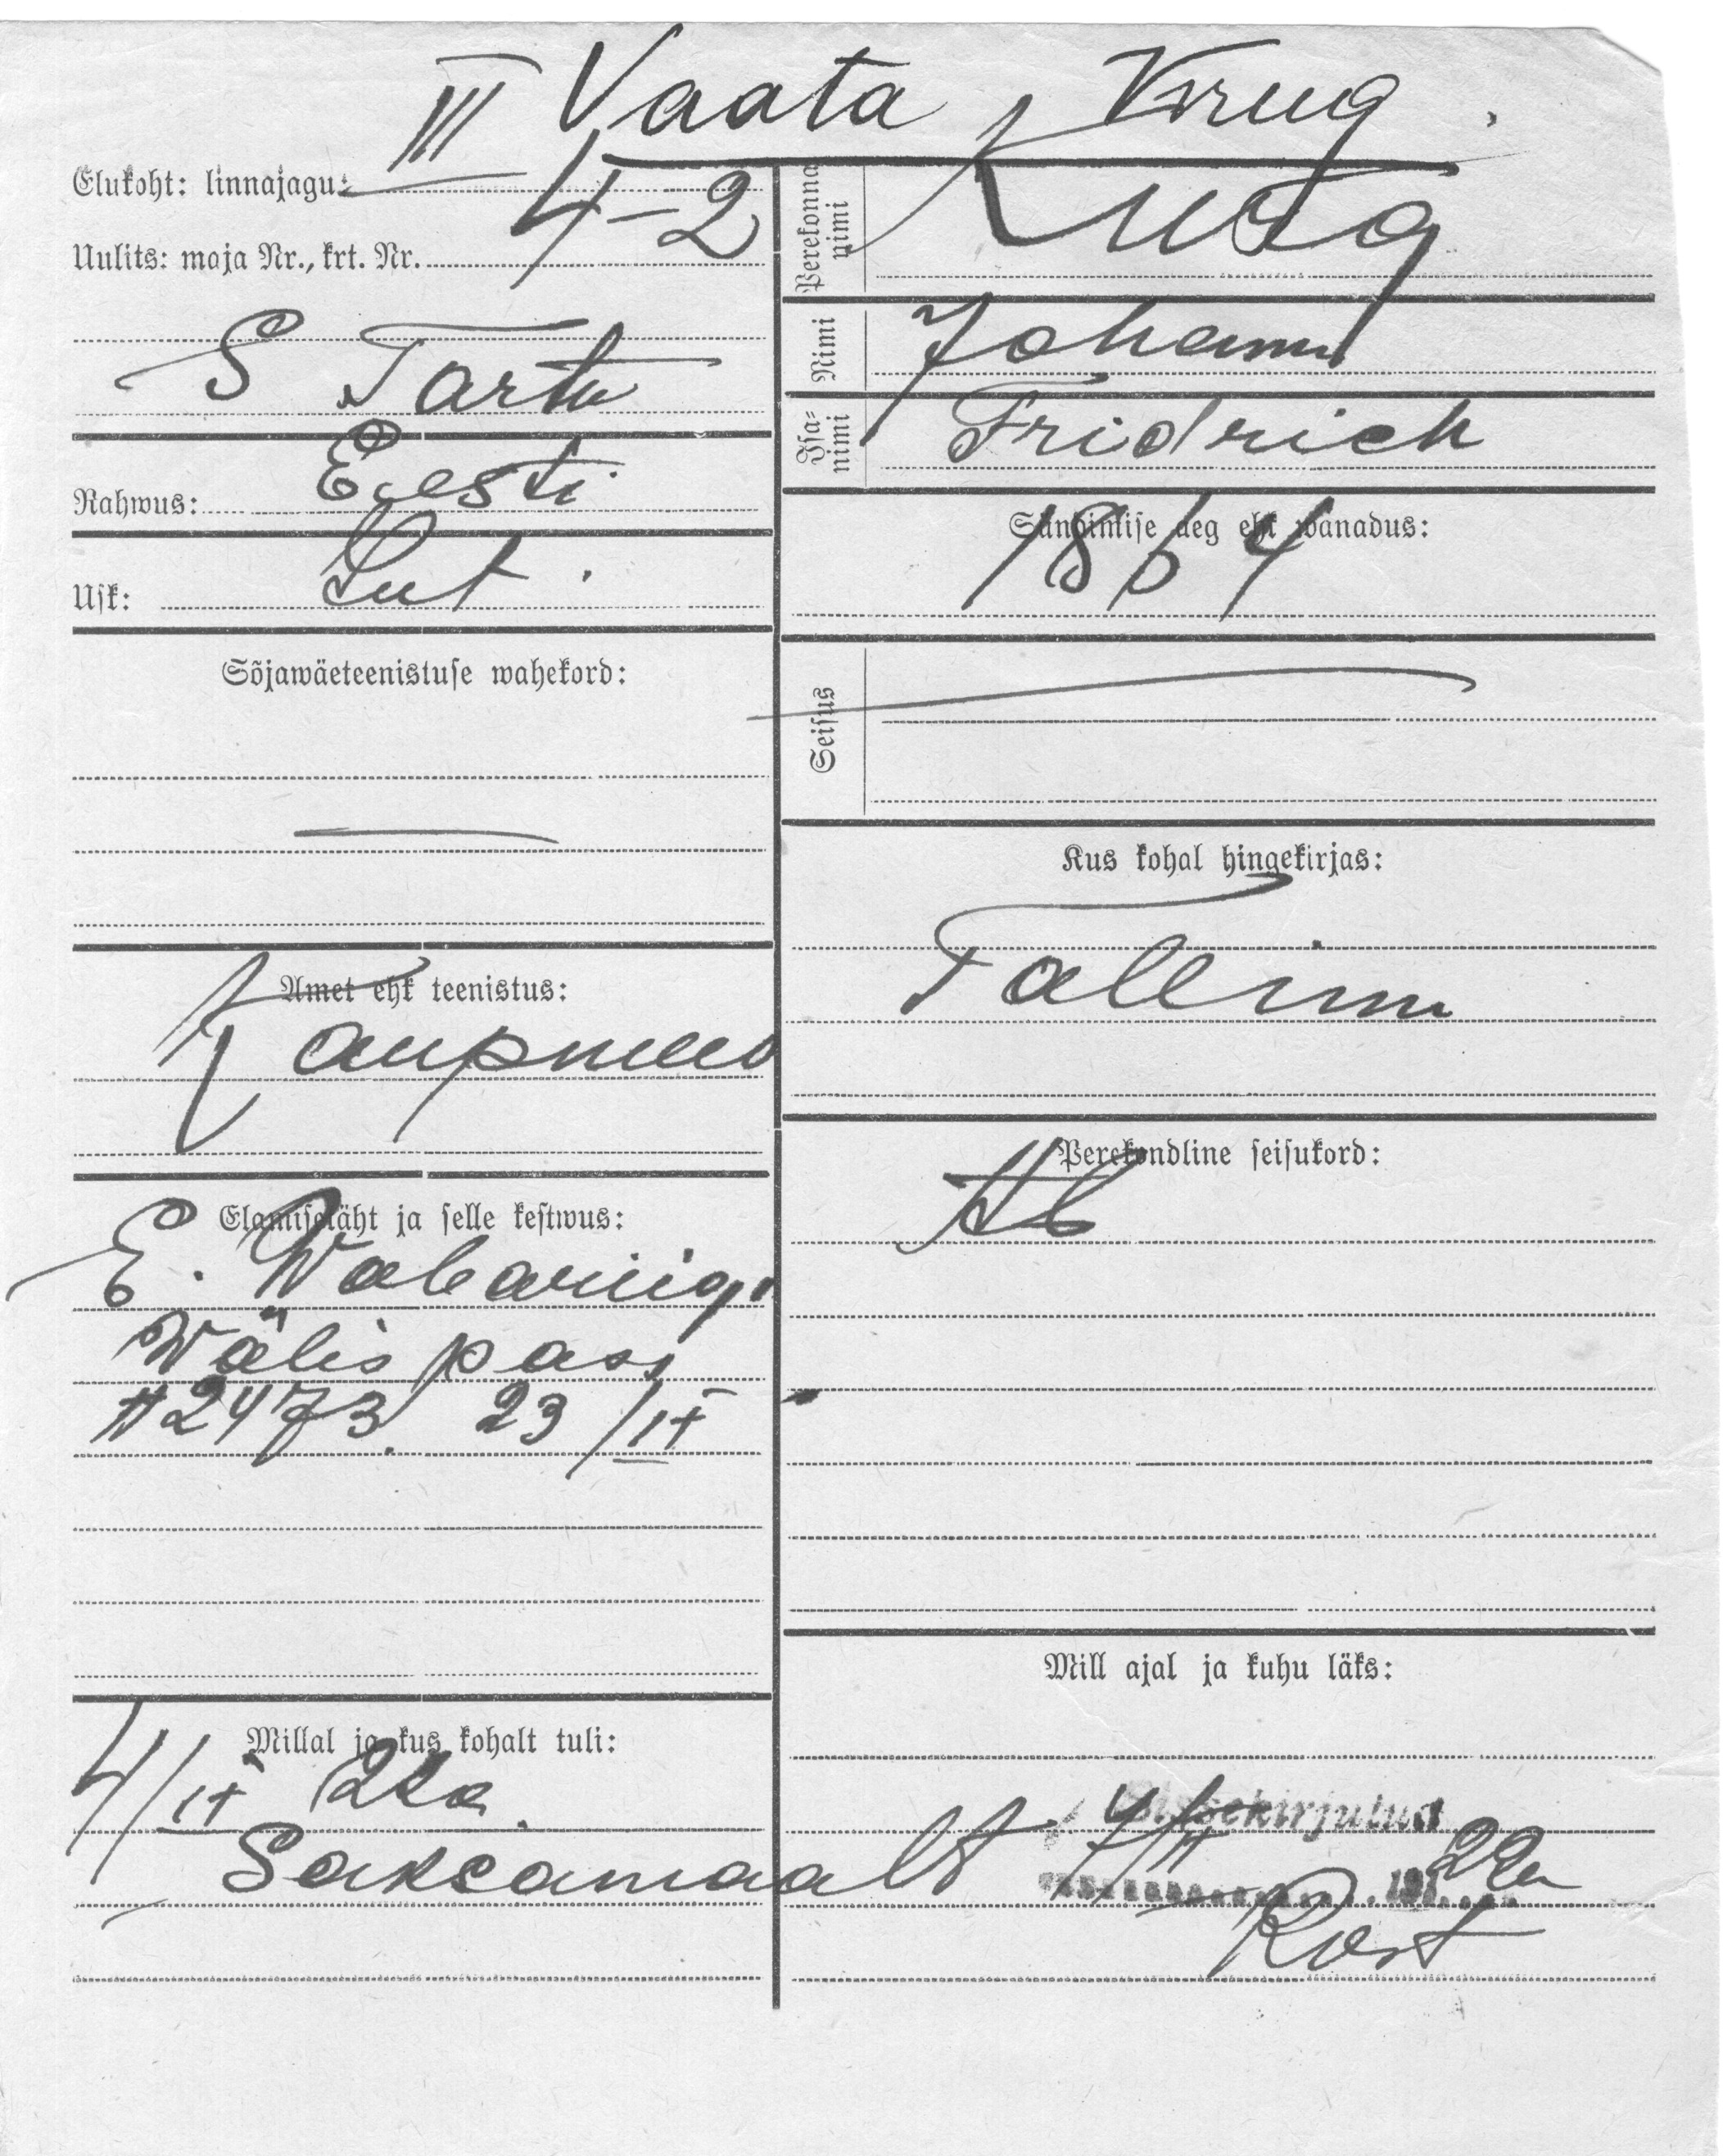 Vaata Krug
Elukoht: linnajagu: III
Uulits: maja Nr., krt. Nr. 4-2
S Tartu
Rahwus: Eesti
Usk: Lut.
Sõjawäeteenistuse wahekord:
Amet ehk teenistus:
Kaupmees
Elamiseläht ja selle kestwus:
E. Wabariigi
Wälispass
#2473. 23/IX
Millal ja kus kohalt tuli:
4/IX 22a.
Saksamaalt
Perekonna nimi
Isa-nimi Fridrich
Nimi Johann
Sündimise aeg ehk wanadus:
1864
Seisus
Kus kohal hingekirjas:
Tallinn
Perekondline seisukord:
Ab
Mill ajal ja kuhu läks:
Sissekirjutud
192 22a